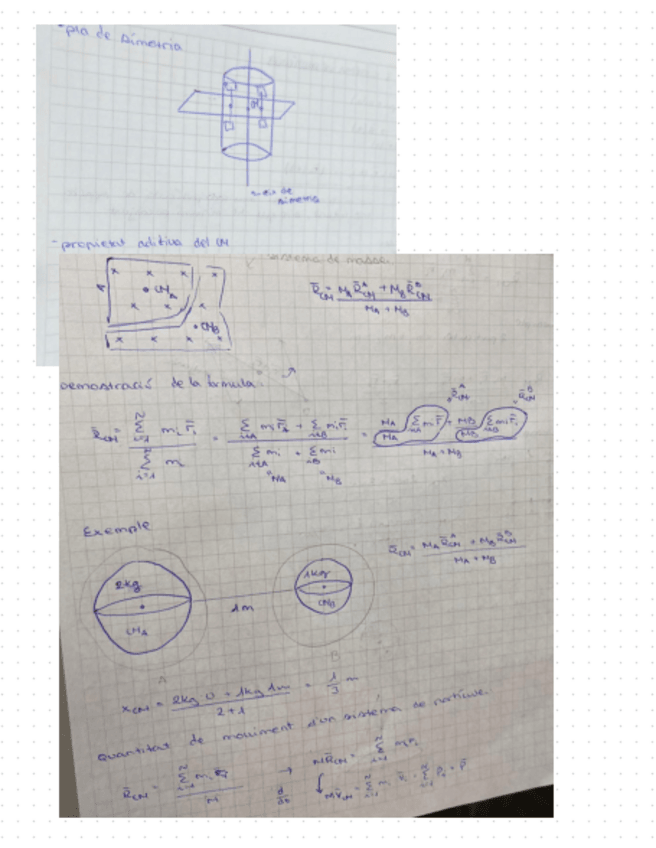 - pla de simetria
eix de simetria
- propietat aditiva del CM
sistema de masses
A
CM_A
CM_B
R̄_CM = (M_A R̄^A_CM + M_B R̄^B_CM) / (M_A + M_B)
Demostració de la fórmula:
R̄_CM = (Σ_{i=1}^N m_i r̄_i) / (Σ_{i=1}^N m_i) = (Σ_{i∈A} m_i r̄_i + Σ_{i∈B} m_i r̄_i) / (Σ_{i∈A} m_i + Σ_{i∈B} m_i) = (M_A/M_A Σ_{i∈A} m_i r̄_i + M_B/M_B Σ_{i∈B} m_i r̄_i) / (M_A + M_B)
R̄^A_CM R̄^B_CM
"M_A "M_B
Exemple
R̄_CM = (M_A R̄^A_CM + M_B R̄^B_CM) / (M_A + M_B)
2kg
CM_A
1m
1kg
CM_B
A B
x_CM = (2kg·0 + 1kg·1m) / (2+1) = 1/3 m
Quantitat de moviment d'un sistema de partícules.
R̄_CM = (Σ_{i=1}^N m_i r̄_i) / M → M R̄_CM = Σ_{i=1}^N m_i r̄_i
d/dt M v̄_CM = Σ_{i=1}^N m_i v̄_i = Σ_{i=1}^N p̄_i = p̄